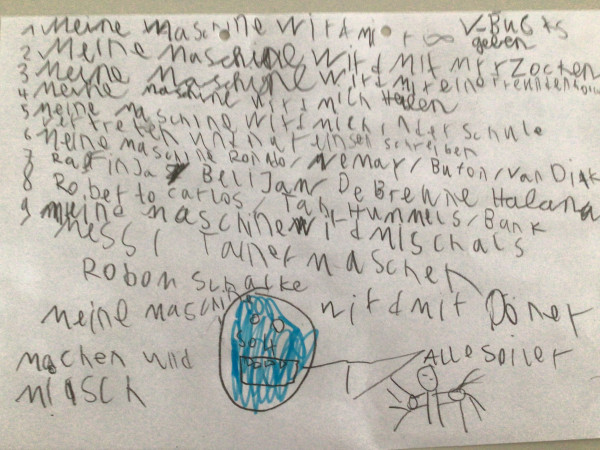 1 Meine Maschine wird mir ∞ V-Bucks
geben
2 Meine Maschine wird mit mir Zocken
3 Meine Maschine wird mir eine Freundin
4 meine maschine wird mich Heilen
5 meine maschine wird mich in der Schule
vertreten und nur einsen schreiben
6 Meine maschine Ronaldo/Nemar/Buton/van Dik
7 Rafinja Belijam De Breune Haland
8 Roberto carlos/Tah/Hummels/Bank
9 meine maschine wird mischals
Messi Tainer maschen
Robon schalke
Meine maschine wird mit Döner
machen und
miasch
Alles oiler